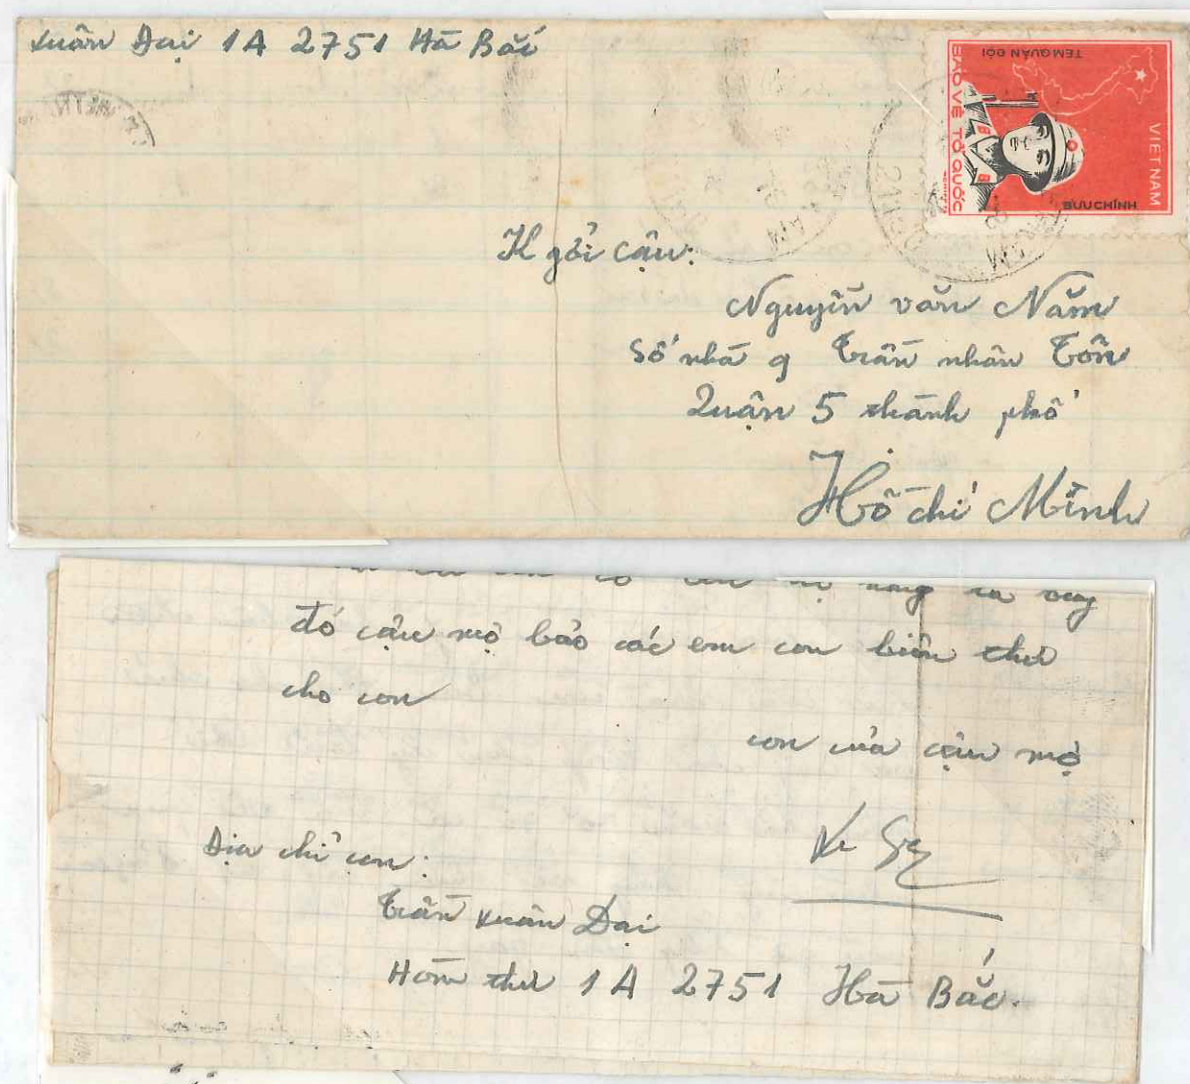 Xuân Đại 1A 2751 Hà Bắc
TEM QUÂN ĐỘI
BẢO VỆ TỔ QUỐC
VIET NAM
BƯU CHÍNH
K gởi cậu:
Nguyễn văn Năm
Số nhà 9 Trần nhân Tôn
Quận 5 thành phố
Hồ chí Minh
ra vay
đó cậu mợ bảo các em con biên thư
cho con
con của cậu mợ
Địa chỉ con:
Trần Xuân Đại
Hòm thư 1A 2751 Hà Bắc.